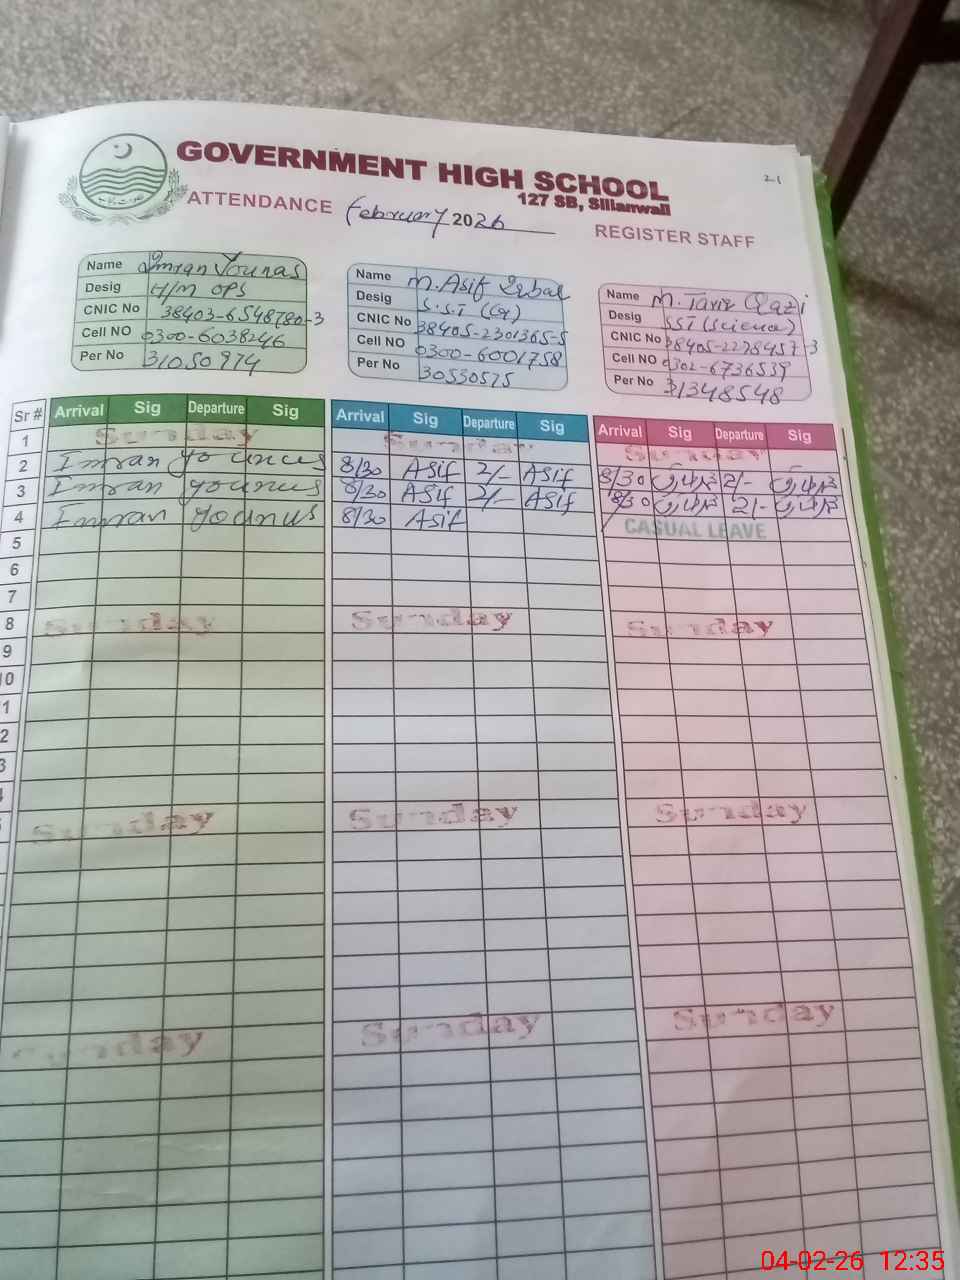 GOVERNMENT HIGH SCHOOL
127 SB, Sillanwali
21
ATTENDANCE February 2026 REGISTER STAFF
Name Imran Younas
Desig H/M OPS
CNIC No 38403-6548780-3
Cell NO 0300-6038246
Per No 31050974
Name M. Asif Iqbal
Desig S.S.T (Gr)
CNIC No 38405-2301365-5
Cell NO 0300-6001758
Per No 30530575
Name M. Tariq Qazi
Desig SST (Science)
CNIC No 38405-2278457-3
Cell NO 0302-6736539
Per No 31348548
Sr # Arrival Sig Departure Sig Arrival Sig Departure Sig Arrival Sig Departure Sig
1 Sunday Sunday Sunday
2 Imran younus 8/30 Asif 2/- Asif 8/30 2/-
3 Imran younus 8/30 Asif 2/- Asif 8/30 2/-
4 Imran younus 8/30 Asif CASUAL LEAVE
5
6
7
8 Sunday Sunday Sunday
9
10
1
2
3
Sunday Sunday Sunday
Sunday Sunday Sunday
04-02-26 12:35